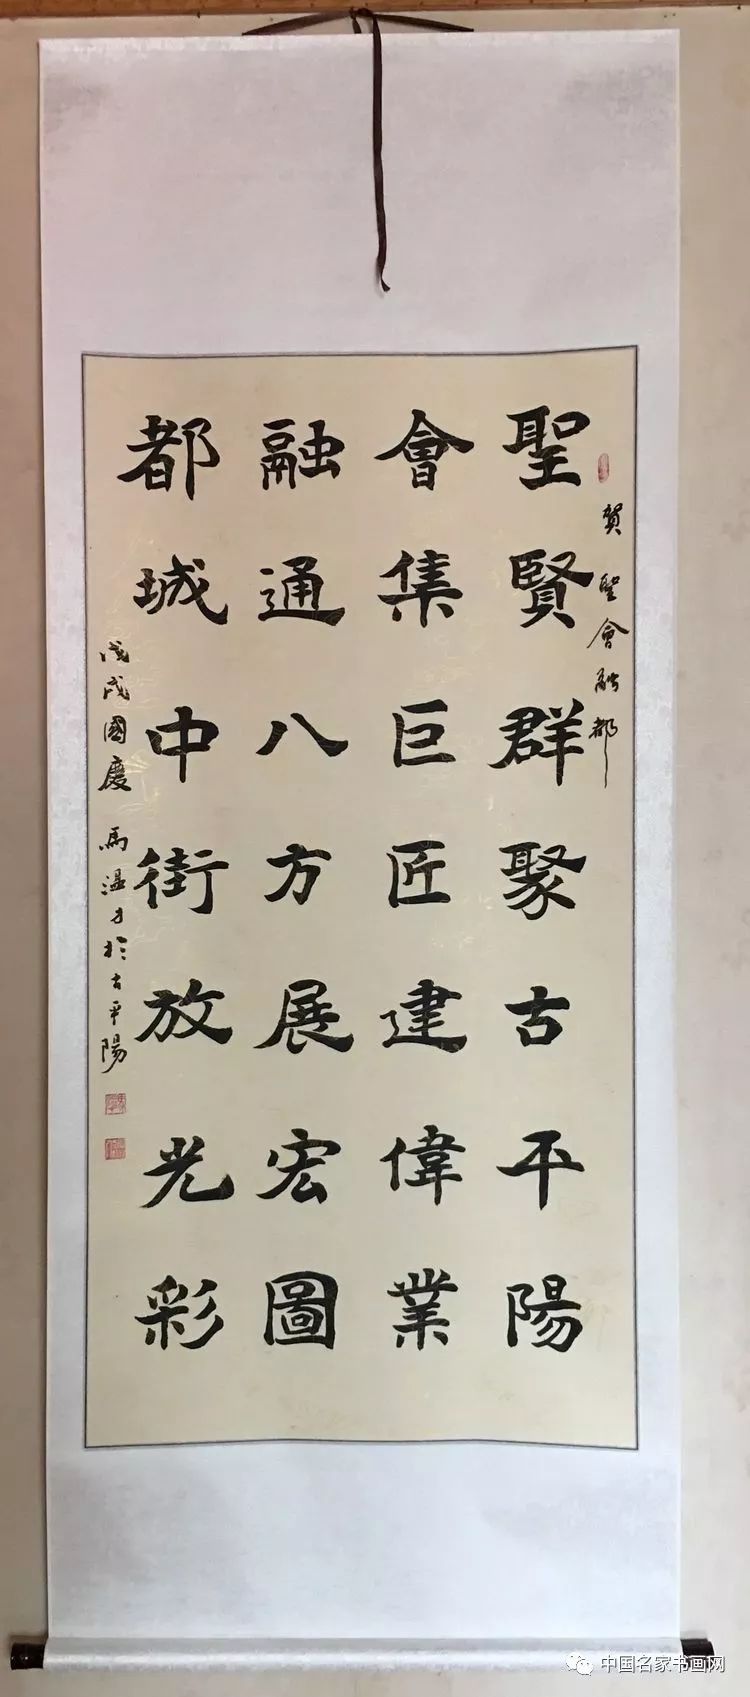 賀聖會融都
聖賢群聚古平陽
會集巨匠建偉業
融通八方展宏圖
都城中街放光彩
戊戌國慶 馬溫才於古平陽
中国名家书画网